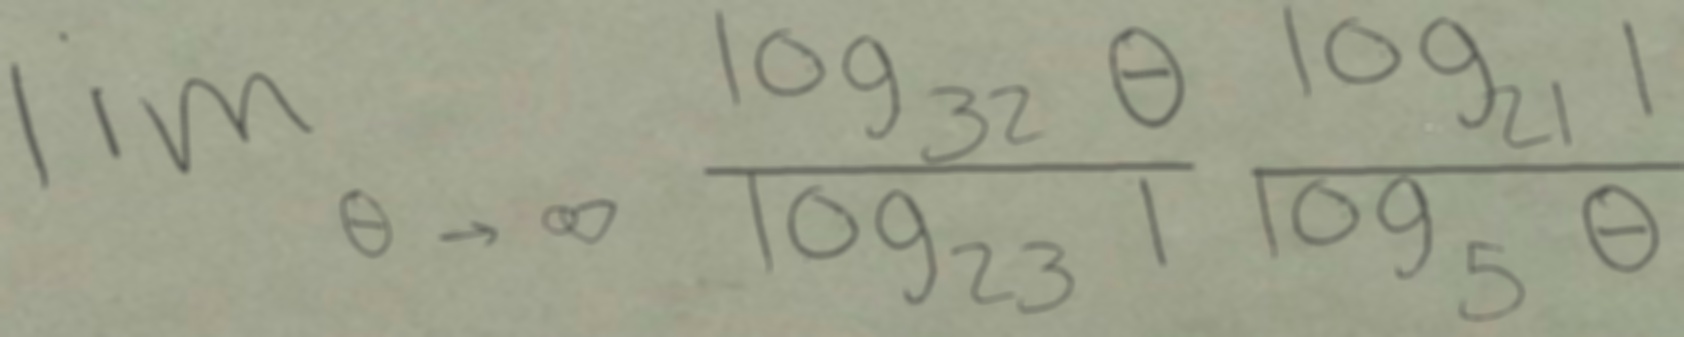 lim θ → ∞ log₃₂ θ / log₂₃ 1 log₂₁ 1 / log₅ θ